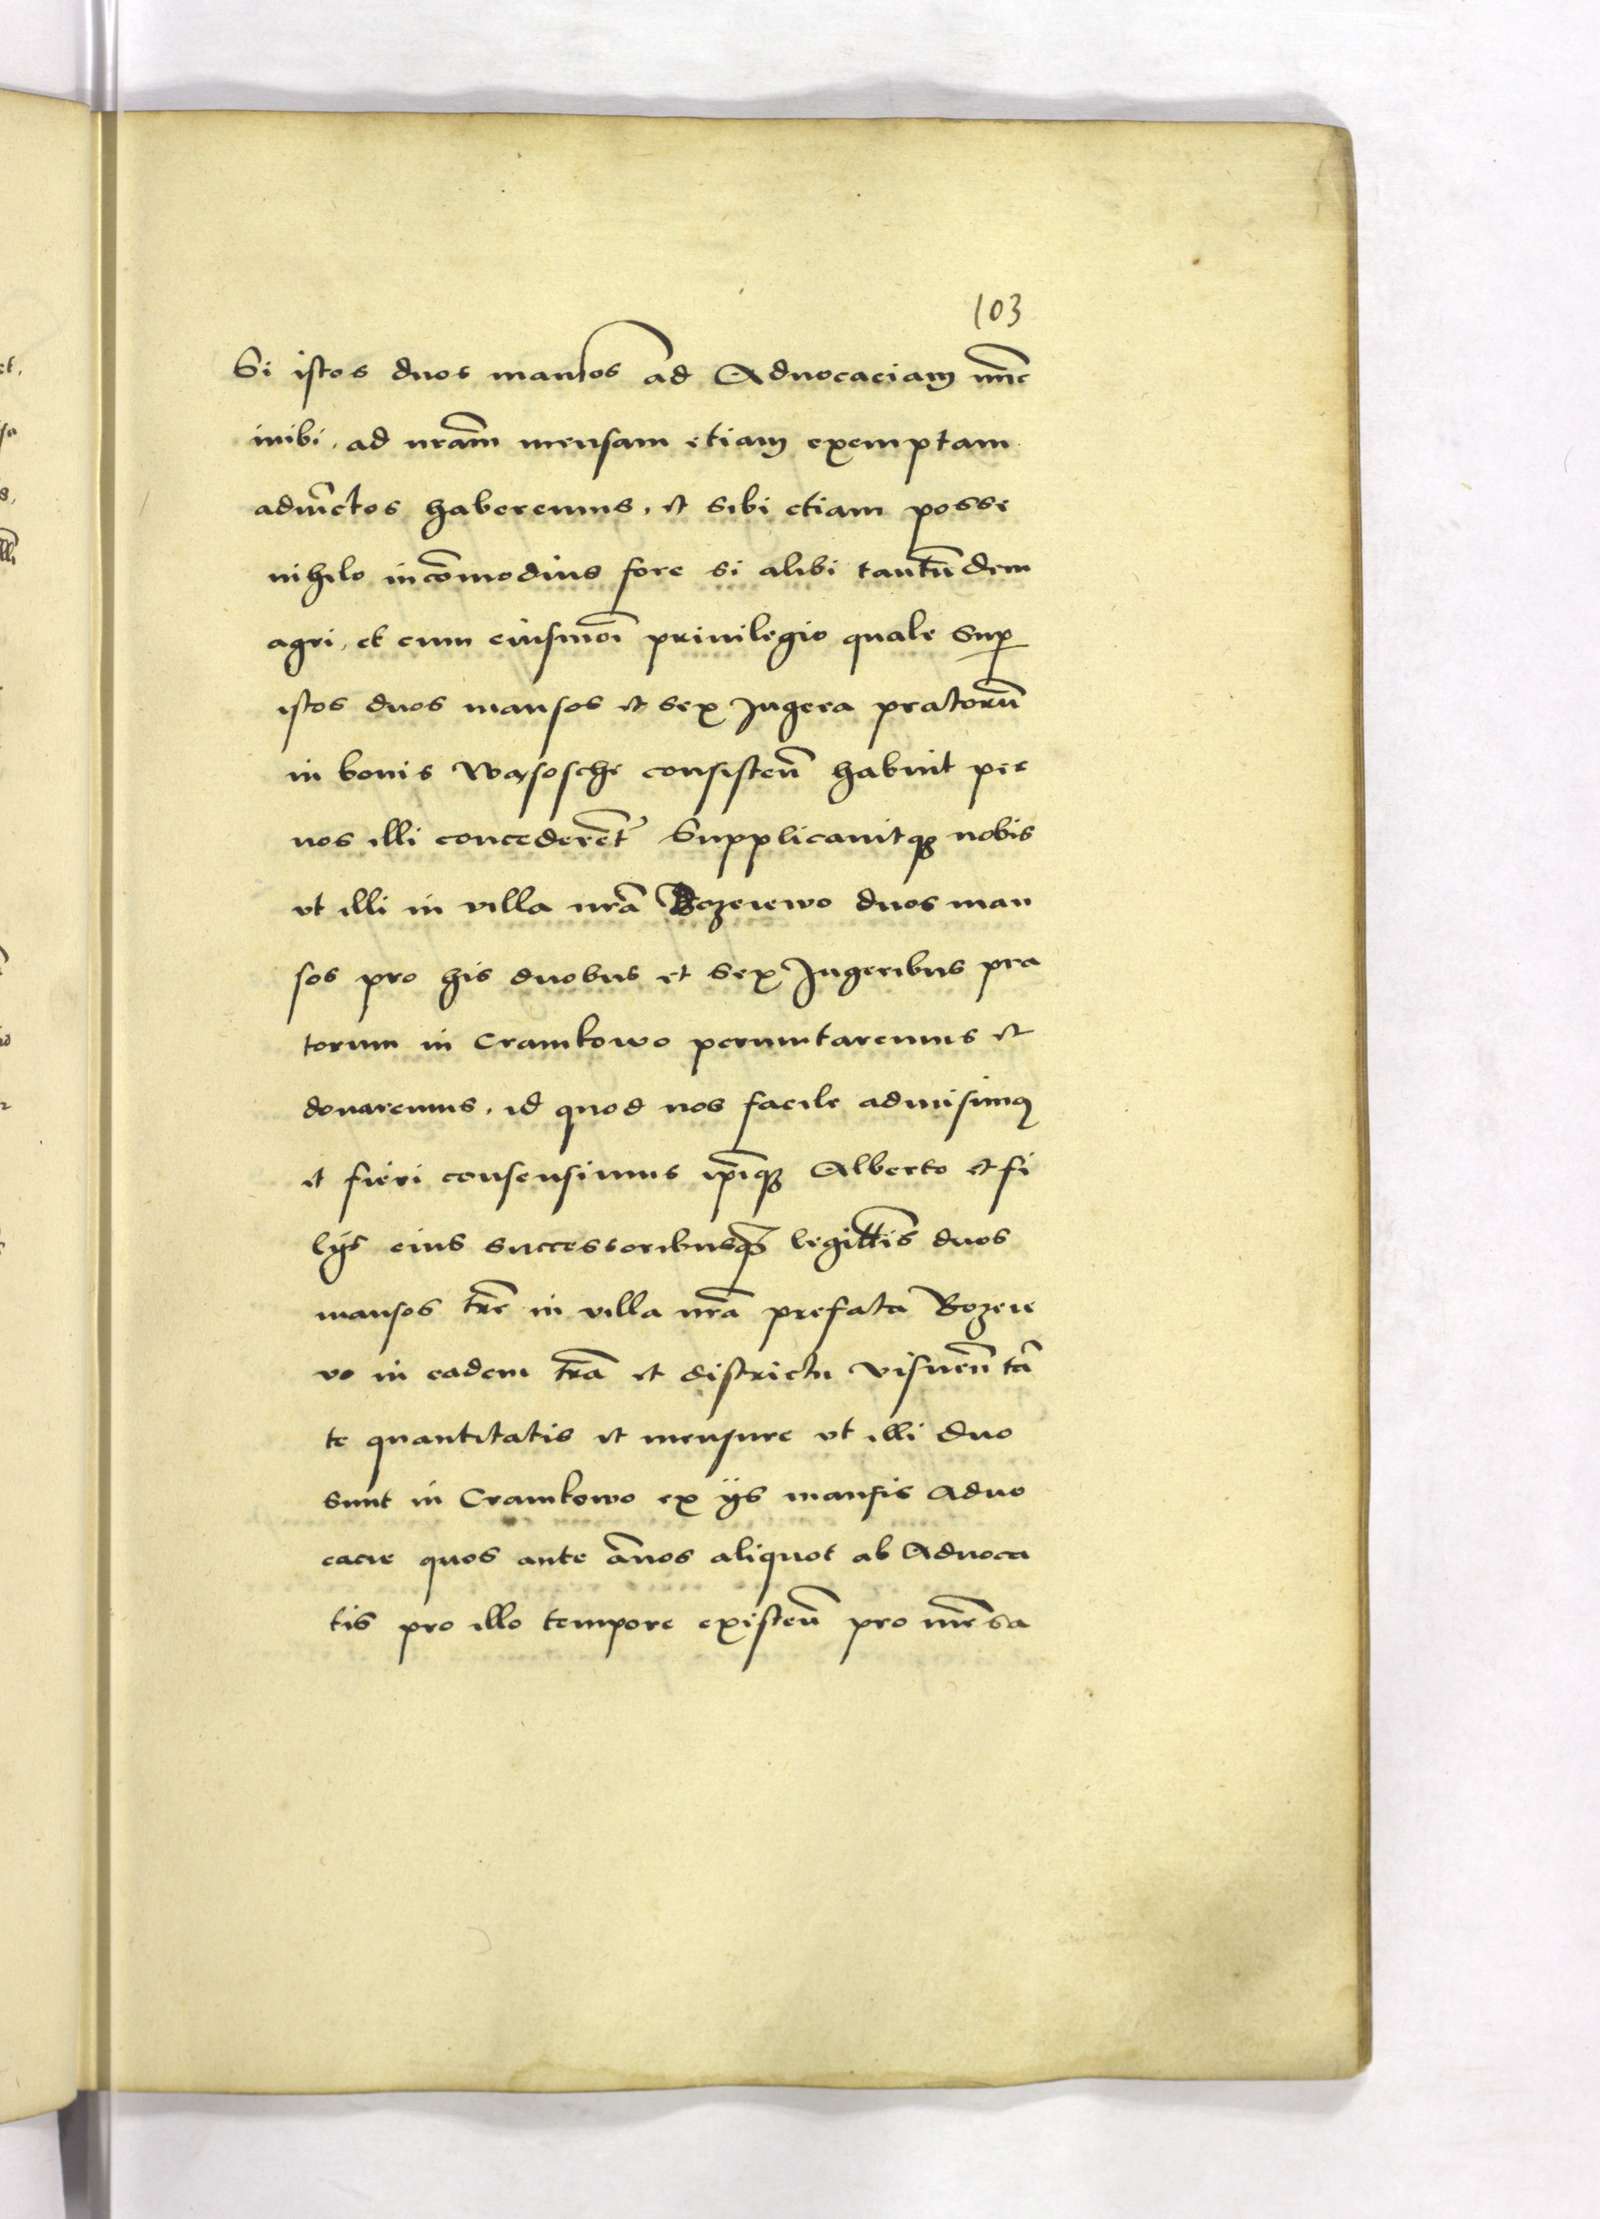 103
Si istos duos mansos ad Aduocaciam nūc
inibi, ad nrām mensam etiam exemptam
adiūctos haberemus, et sibi etiam posse
nihilo incōmodius fore si alibi tantūdem
agri, et cum eiusmōi priuilegio quale sup
istos duos mansos et sex Jugera pratorū
in bonis Wąsosche consisteñ habuit per
nos illi concederēt Supplicauitqꝫ nobis
vt illi in villa nrā Bozeiewo duos man
sos pro his duobus et sex Jugeribus pra
torum in Cramkowo permutaremus et
donaremus, id quod nos facile admisimꝰ
et fieri consensimus ip̄iqꝫ Alberto et fi
lijs eius successoribusqꝫ legittīs duos
mansos tr̄e in villa nrā prefata Bozeie
vo in eadem tr̄a et districtu visneñ tā
te quantitatis et mensure vt illi duo
sunt in Cramkowo ex ijs mansis Aduo
cacie quos ante ānos aliquot ab Aduoca
tis pro illo tempore existeñ pro mensa